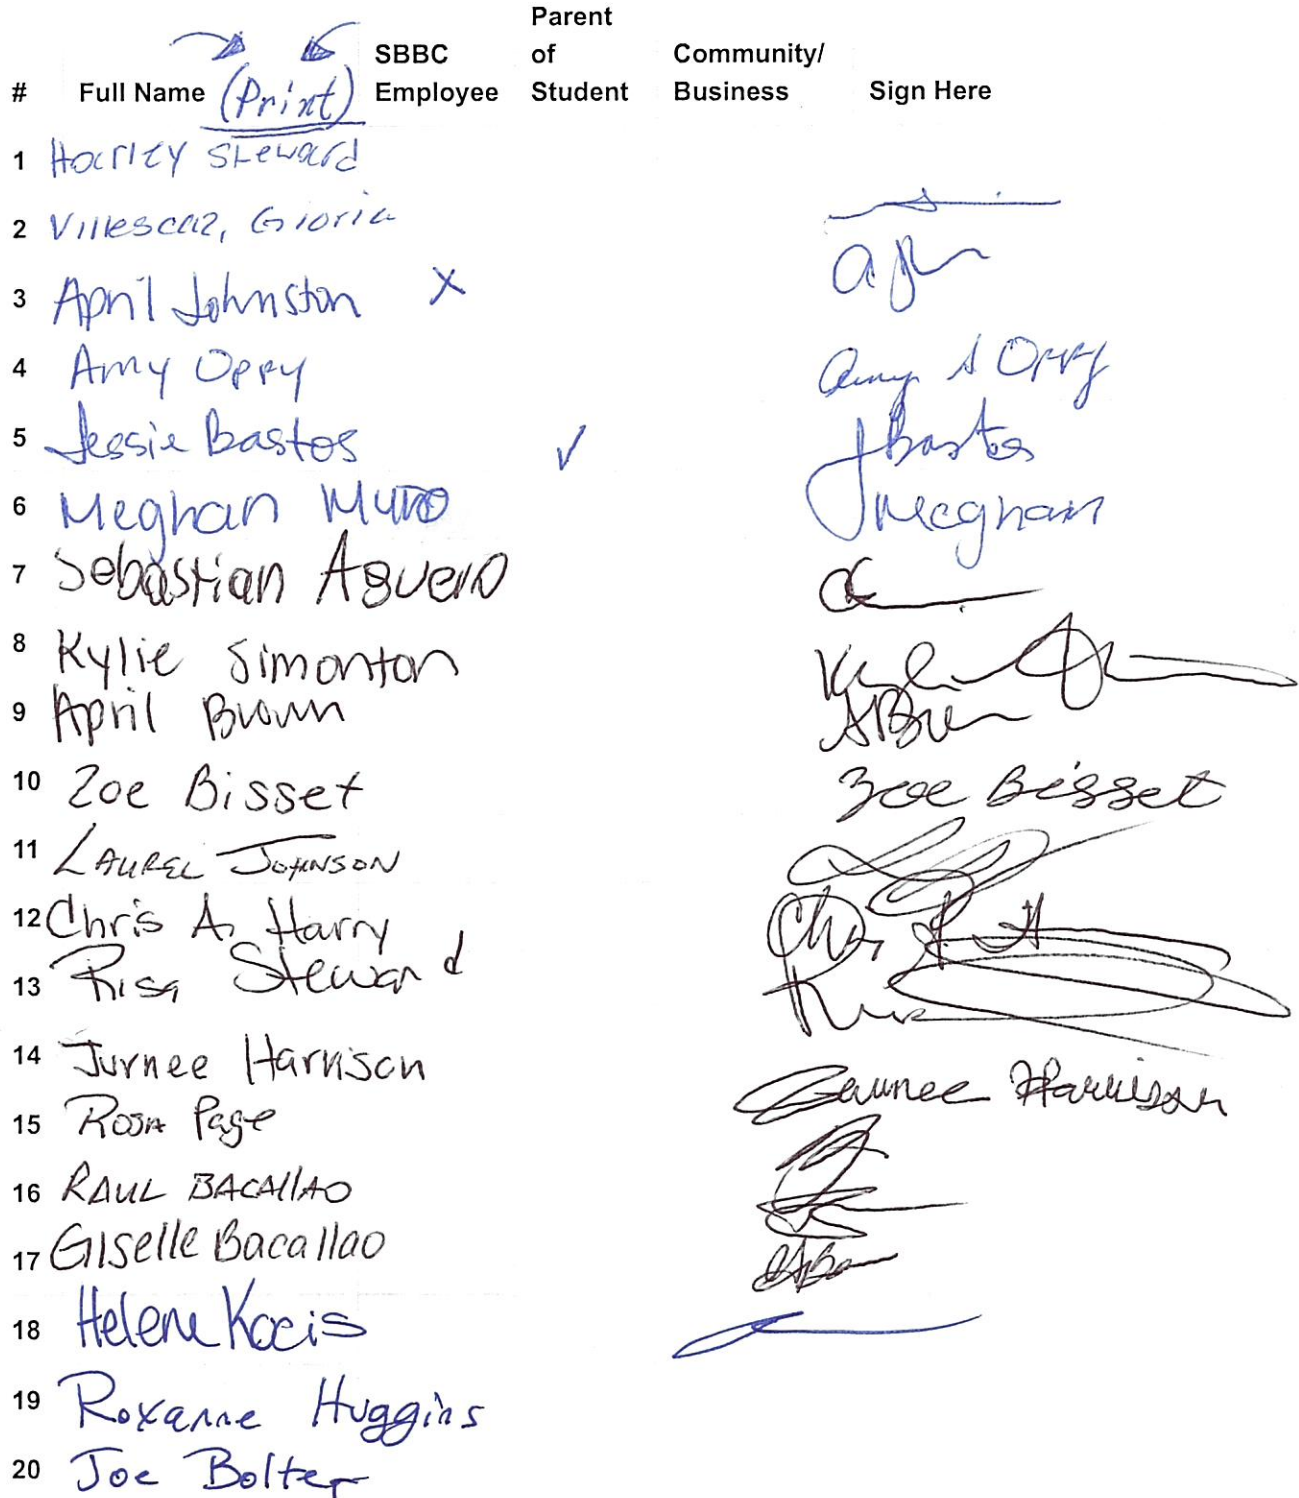 # Full Name (Print) SBBC Employee Parent of Student Community/ Business Sign Here
1 Harley Steward
2 Villescaz, Gloria
3 April Johnston X
4 Amy Oppy Amy S Oppy
5 Jessie Bastos ✓ JBastos
6 Meghan Muro Meghan
7 Sebastian Aguero
8 Kylie Simonton
9 April Brown
10 Zoe Bisset Zoe Bisset
11 LAUREL JOHNSON
12 Chris A. Harry
13 Risa Steward
14 Jurnee Harrison Jeurnee Harrison
15 Rosa Page
16 RAUL BACAllAO
17 GIselle Bacallao
18 Helene Kocis
19 Roxanne Huggins
20 Joe Bolter